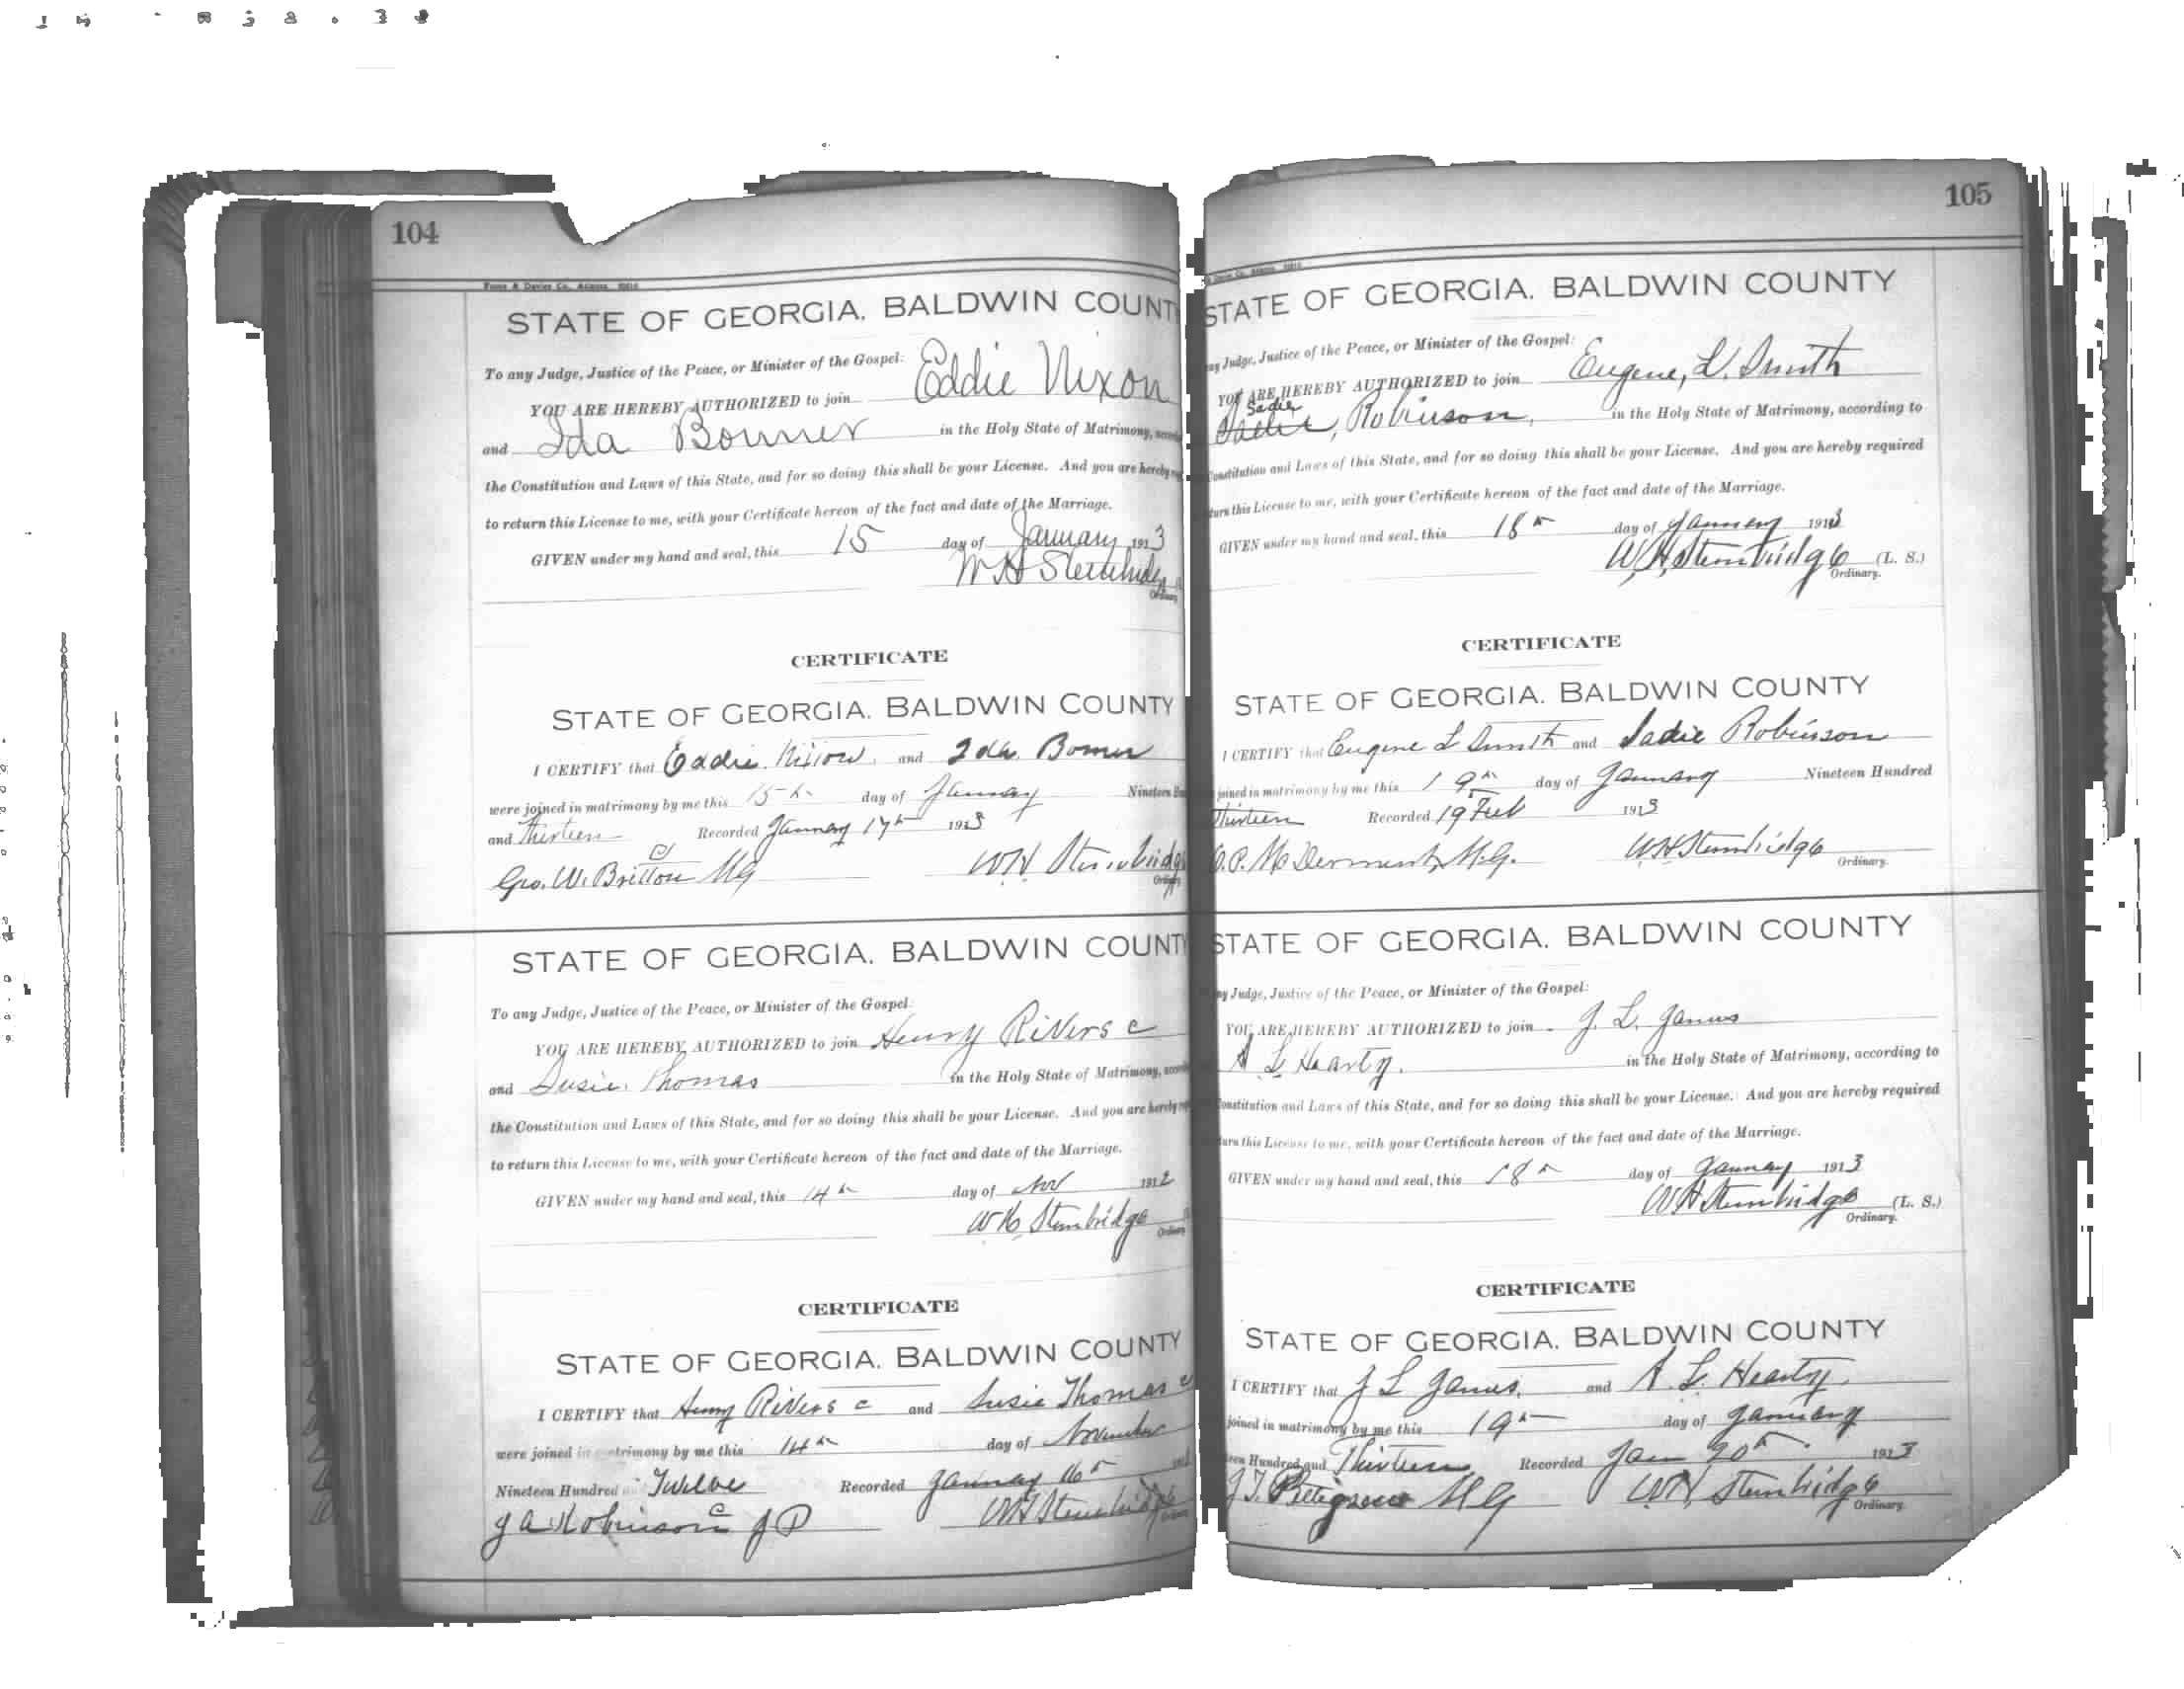 104
Foote & Davies Co., Atlanta
STATE OF GEORGIA. BALDWIN COUNT
To any Judge, Justice of the Peace, or Minister of the Gospel:
YOU ARE HEREBY AUTHORIZED to join Eddie Nixon
and Ida Bonner in the Holy State of Matrimony,
the Constitution and Laws of this State, and for so doing this shall be your License. And you are hereby
to return this License to me, with your Certificate hereon of the fact and date of the Marriage.
GIVEN under my hand and seal, this 15 day of January 1913
W H Stembridge
Ordinary
CERTIFICATE
STATE OF GEORGIA. BALDWIN COUNTY
I CERTIFY that Eddie Nixon and Ida Bonner
were joined in matrimony by me this 15th day of January Nineteen
and Thirteen Recorded January 17th 1913
Geo. W. Britton MG W H Stembridge
Ordinary
STATE OF GEORGIA. BALDWIN COUNT
To any Judge, Justice of the Peace, or Minister of the Gospel:
YOU ARE HEREBY AUTHORIZED to join Henry Rivers c
and Susie Thomas in the Holy State of Matrimony,
the Constitution and Laws of this State, and for so doing this shall be your License. And you are hereby
to return this License to me, with your Certificate hereon of the fact and date of the Marriage.
GIVEN under my hand and seal, this 14th day of Nov 1912
W H Stembridge
Ordinary
CERTIFICATE
STATE OF GEORGIA. BALDWIN COUNTY
I CERTIFY that Henry Rivers c and Susie Thomas c
were joined in matrimony by me this 14th day of November
Nineteen Hundred Twelve Recorded January 16th
J A Robinson c J P W H Stembridge
105
STATE OF GEORGIA. BALDWIN COUNTY
ny Judge, Justice of the Peace, or Minister of the Gospel:
YOU ARE HEREBY AUTHORIZED to join Eugene, L. Smith
Sadie
Sadie, Robinson, in the Holy State of Matrimony, according to
Constitution and Laws of this State, and for so doing this shall be your License. And you are hereby required
turn this License to me, with your Certificate hereon of the fact and date of the Marriage.
GIVEN under my hand and seal, this 18th day of January 1913
W. H. Stembridge (L. S.)
Ordinary.
CERTIFICATE
STATE OF GEORGIA. BALDWIN COUNTY
I CERTIFY that Eugene L Smith and Sadie Robinson
joined in matrimony by me this 19th day of January Nineteen Hundred
Thirteen Recorded 19 Feb 1913
W H Stembridge
Ordinary.
STATE OF GEORGIA. BALDWIN COUNTY
ny Judge, Justice of the Peace, or Minister of the Gospel:
YOU ARE HEREBY AUTHORIZED to join J. L. James
A L Hearty. in the Holy State of Matrimony, according to
Constitution and Laws of this State, and for so doing this shall be your License. And you are hereby required
turn this License to me, with your Certificate hereon of the fact and date of the Marriage.
GIVEN under my hand and seal, this 18th day of January 1913
W H Stembridge (L. S.)
Ordinary.
CERTIFICATE
STATE OF GEORGIA. BALDWIN COUNTY
I CERTIFY that J L James. and A. L. Hearty.
joined in matrimony by me this 19th day of January
teen Hundred and Thirteen Recorded Jan 20th 1913
J. T. Pettigrew M G W H Stembridge
Ordinary.